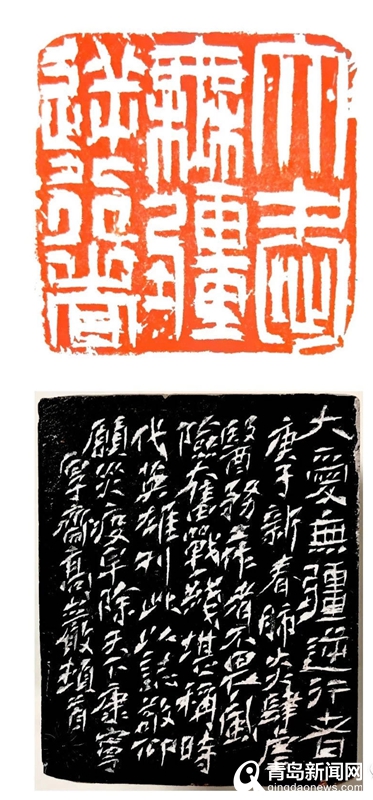 大愛
無疆
逆行者
大愛無疆逆行者
庚子新春肺炎肆虐
醫務者無畏風
險奮戰堪稱時
代英雄刊此以誌敬仰
願災疫早除天下康寧
寧齋高敬頓首
青岛新闻网
qingdaonews.com